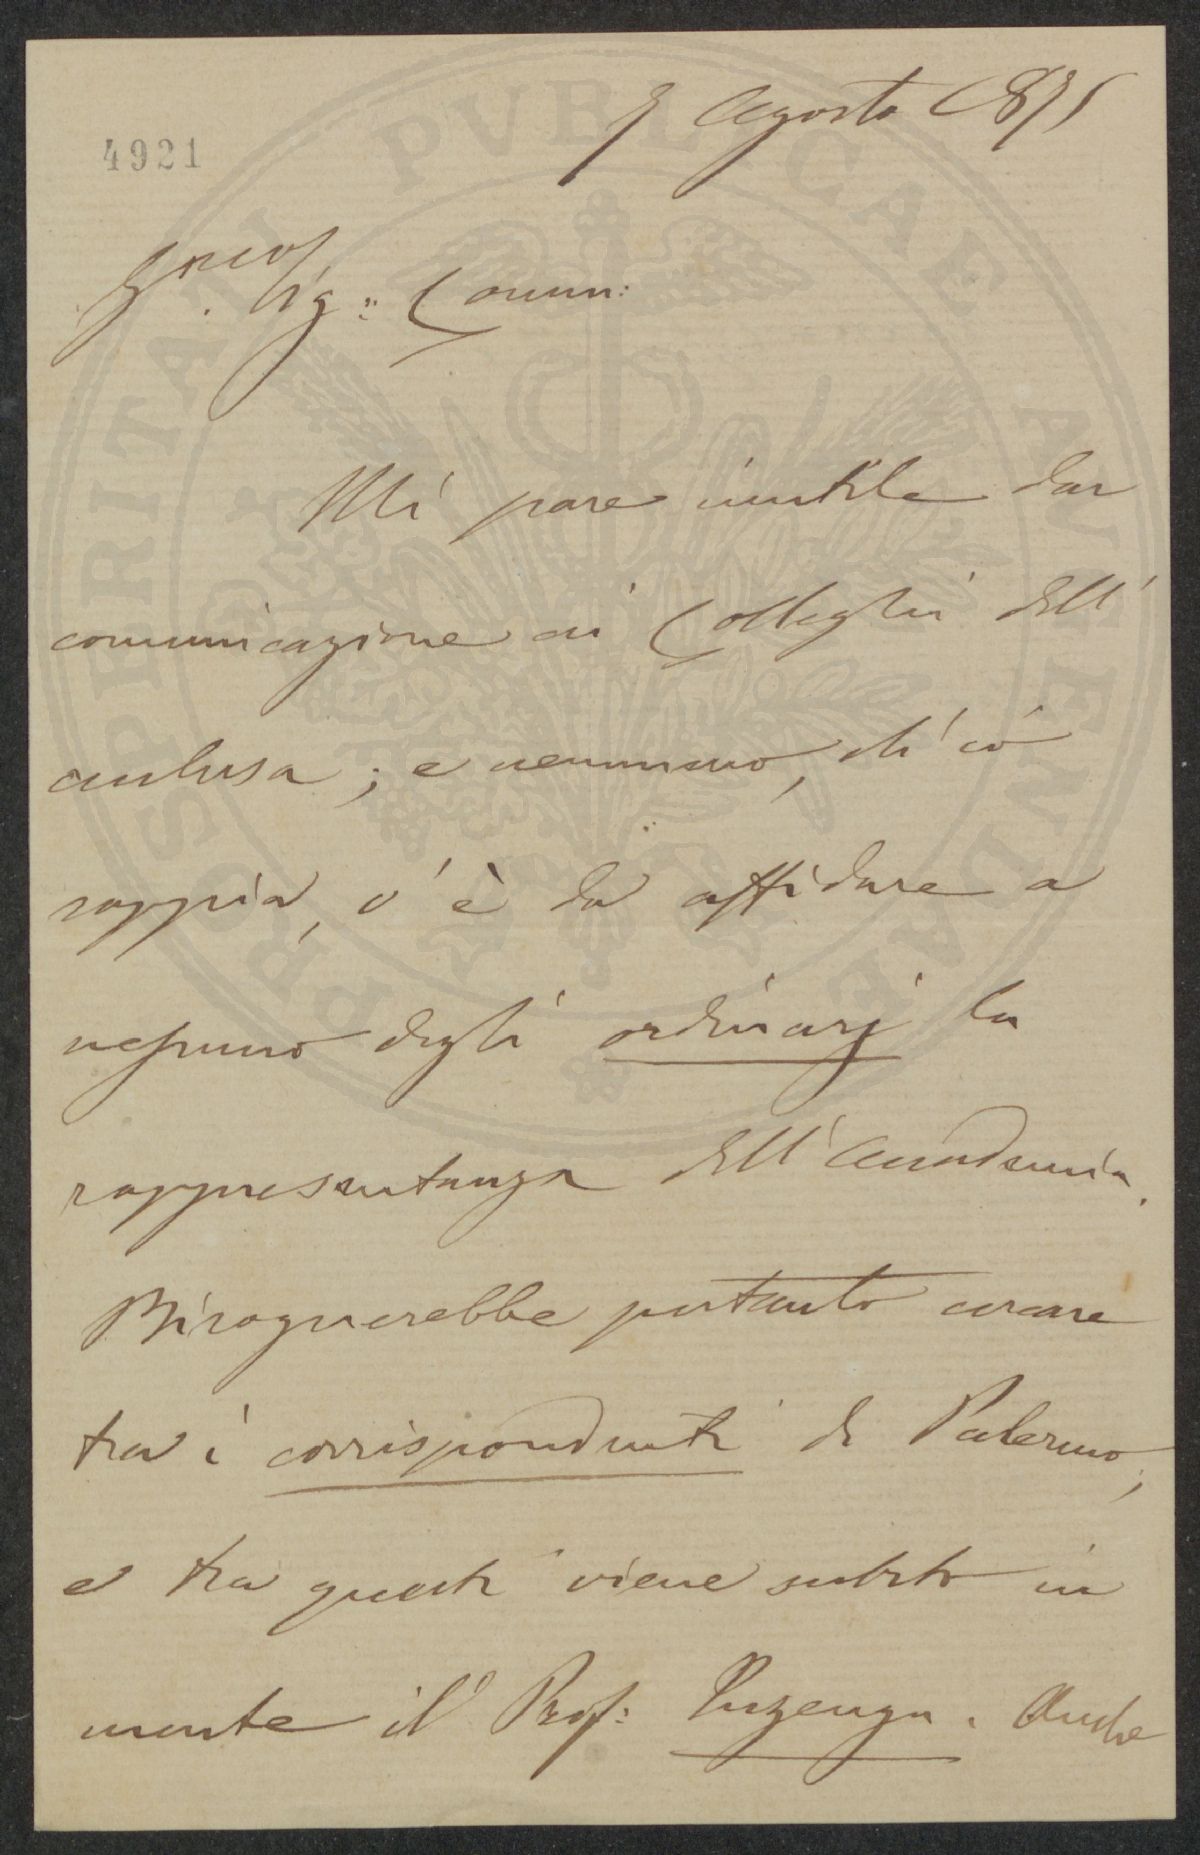 Agosto 1875
4921
Sig: Comm:
Mi pare inutile dar
comunicazione ai Colleghi dell'
acclusa; e nemmeno, ch'io
sappia, v'è da affidare a
nessuno degli ordinarj la
rappresentanza dell'Accademia.
Bisognerebbe pertanto cercare
tra i corrispondenti di Palermo,
e tra questi viene subito in
mente il Prof: Inzenga. Anche
PROSPERITATI PVBLICAE AVGENDAE